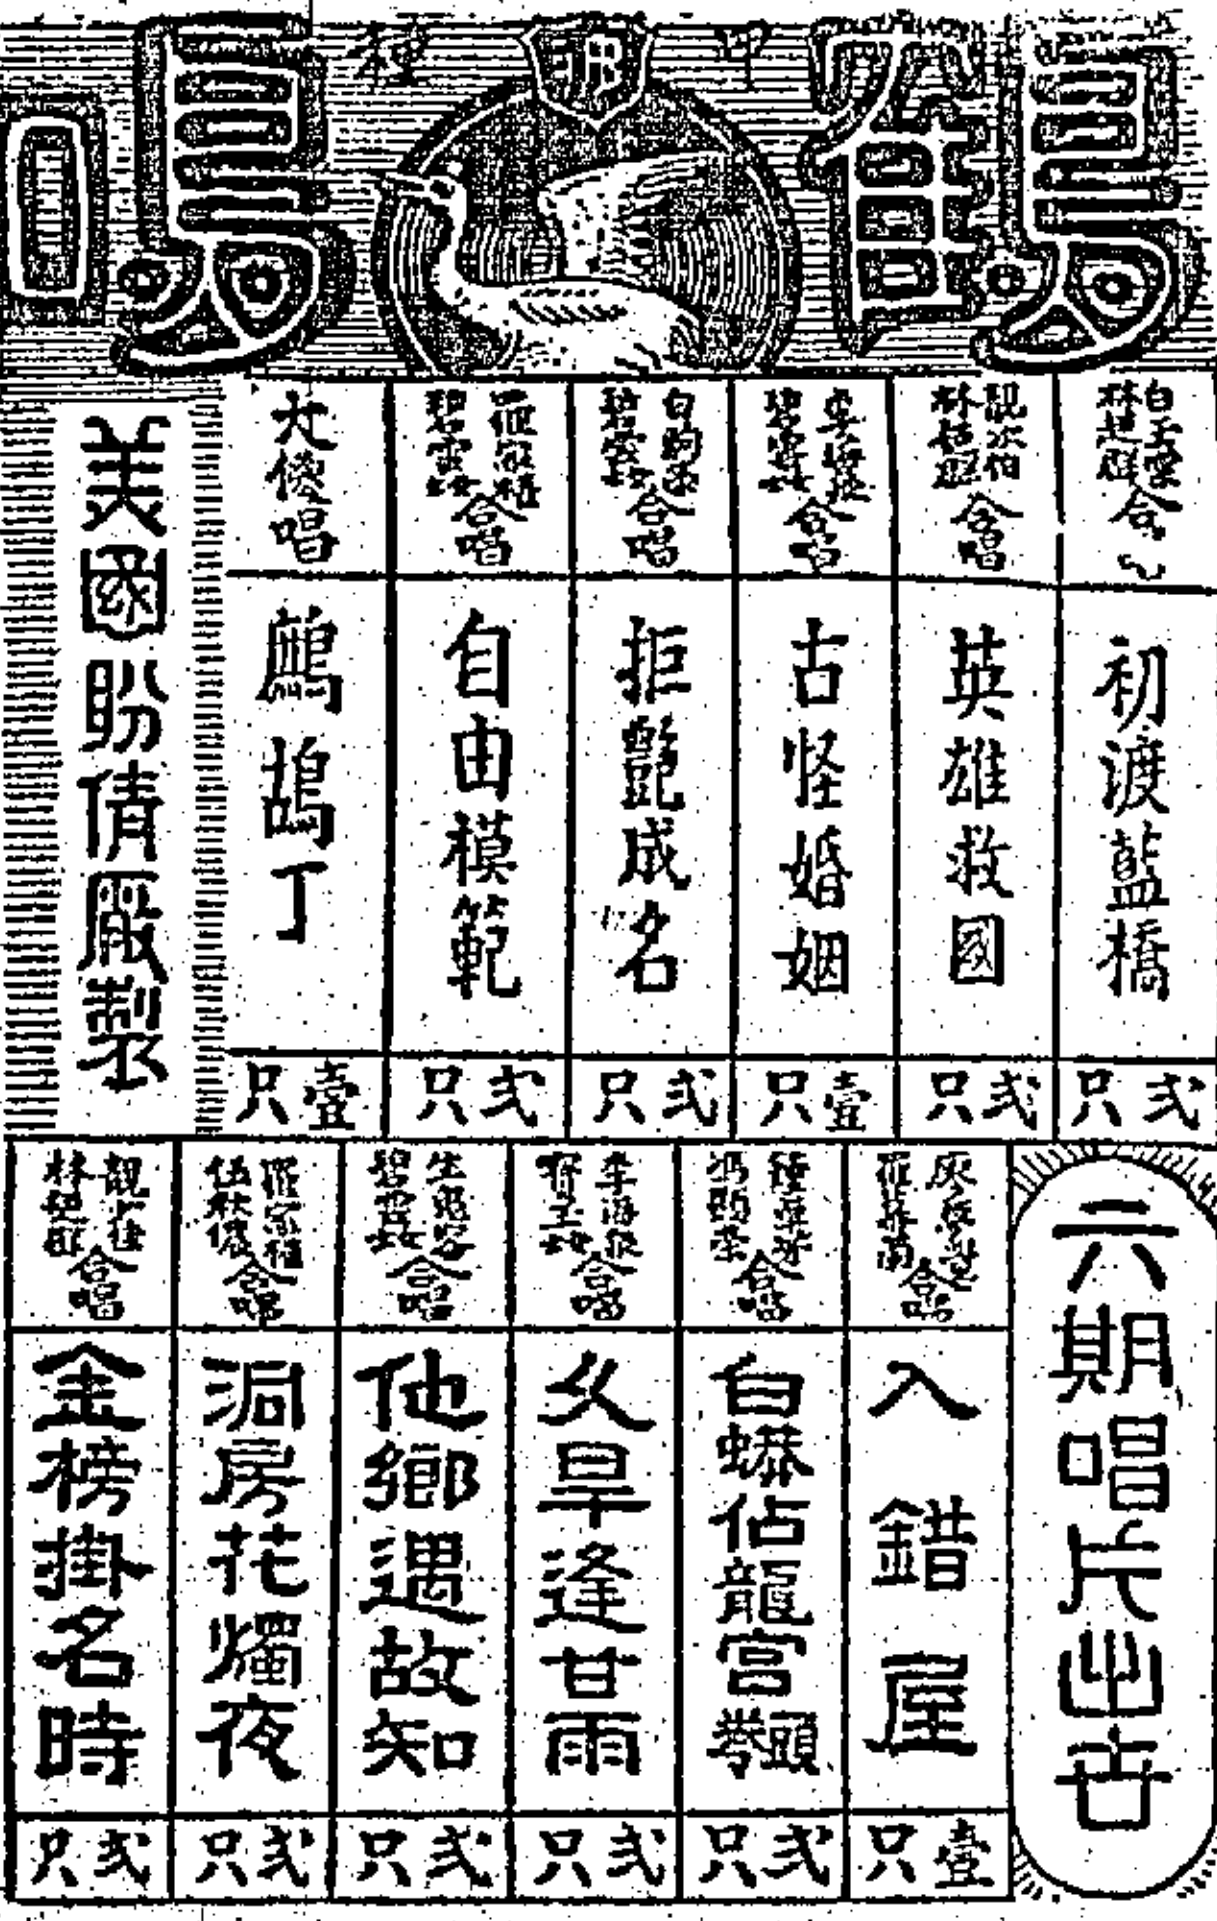 甲種
鶴鳴
白玉堂
林超群
合
初渡藍橋
弍只
靚次伯
林超群
合唱
英雄救國
弍只
李海泉
碧雲女
合唱
古怪婚姻
壹只
白駒榮
碧雲女
合唱
拒艷成名
弍只
羅家權
碧雲女
合唱
自由模範
弍只
大傻唱
鷓鴣丁
壹只
美國盼倩厰製
六期唱片出世
羅慕蘭
合唱
入錯屋
壹只
合唱
白蟒佔龍宮
弍只
李海泉
合唱
久旱逢甘雨
弍只
碧雲女
合唱
他鄉遇故知
弍只
羅家權
伍秋儂
合唱
洞房花燭夜
弍只
林超群
合唱
金榜掛名時
弍只